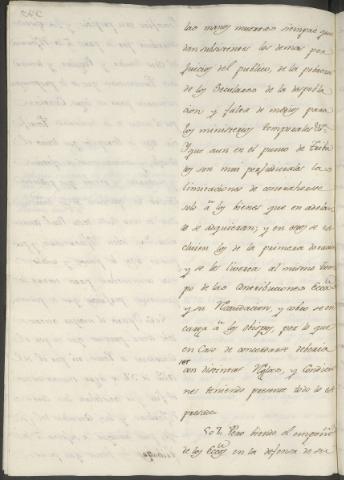 las manos muertas siempre que
dan subsistentes los demas per
juicios del publico, de la pobreza
de los Seculares de la despobla
cion y falta de medios para
los ministerios temporales &a.
Y que aun en el punto de tribu
tos son mui perjudiciales las
limitaciones de concederse
solo â los bienes que en adelan
te se adquieran; y en que se ex
cluien los de la primera
y se les liverta al mismo tiem
po de las contribuciones Ecca.
y su Recaudacion, y cobro se en
carga â los obispos, por lo que
en caso de concederse deberia
ser
con distintas Reglas, y condicio
nes teniendo presente todo lo ex
presado.
Pero siendo el empeño
de los Eccos. en la defensa de su